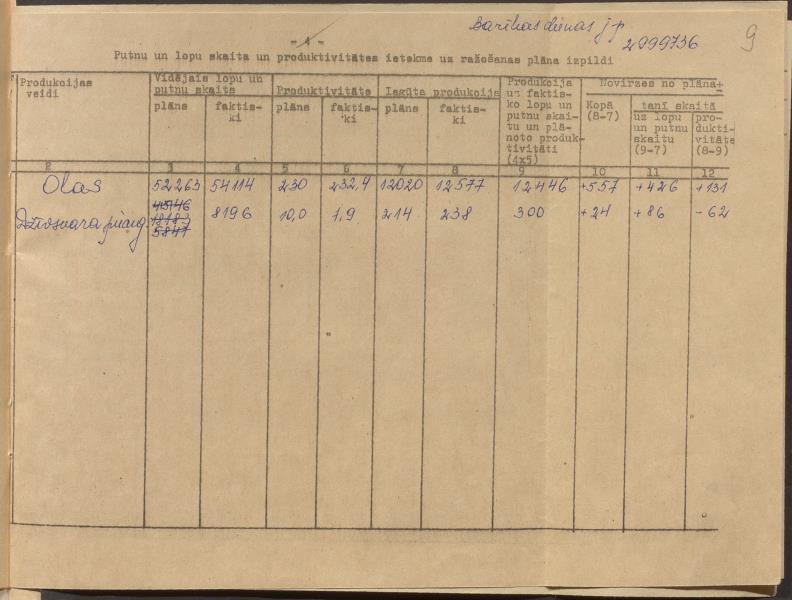 Barības dienas j p.
2999736
9
- 4 -
Putnu un lopu skaita un produktivitātes ietekme uz ražošanas plāna izpildi
Produkcijas veidi
Vidējais lopu un putnu skaits
plāns
faktis-
ki
Produktivitāte
plāns
faktis-
ki
Iegūta produkcija
plāns
faktis-
ki
Produkcija
uz faktis-
ko lopu un
putnu skai-
tu un plā-
noto produk-
tivitāti
(4x5)
Novirzes no plāna+
Kopā
(8-7)
tanī skaitā
uz lopu
un putnu
skaitu
(9-7)
pro-
dukti-
vitāte
(8-9)
2 3 4 5 6 7 8 9 10 11 12
Olas 52263 54114 230 232,4 12020 12577 12446 +557 +426 +131
Dzīvsvara pieaug. 5847 8196 10,0 7,9 214 238 300 +24 +86 -62